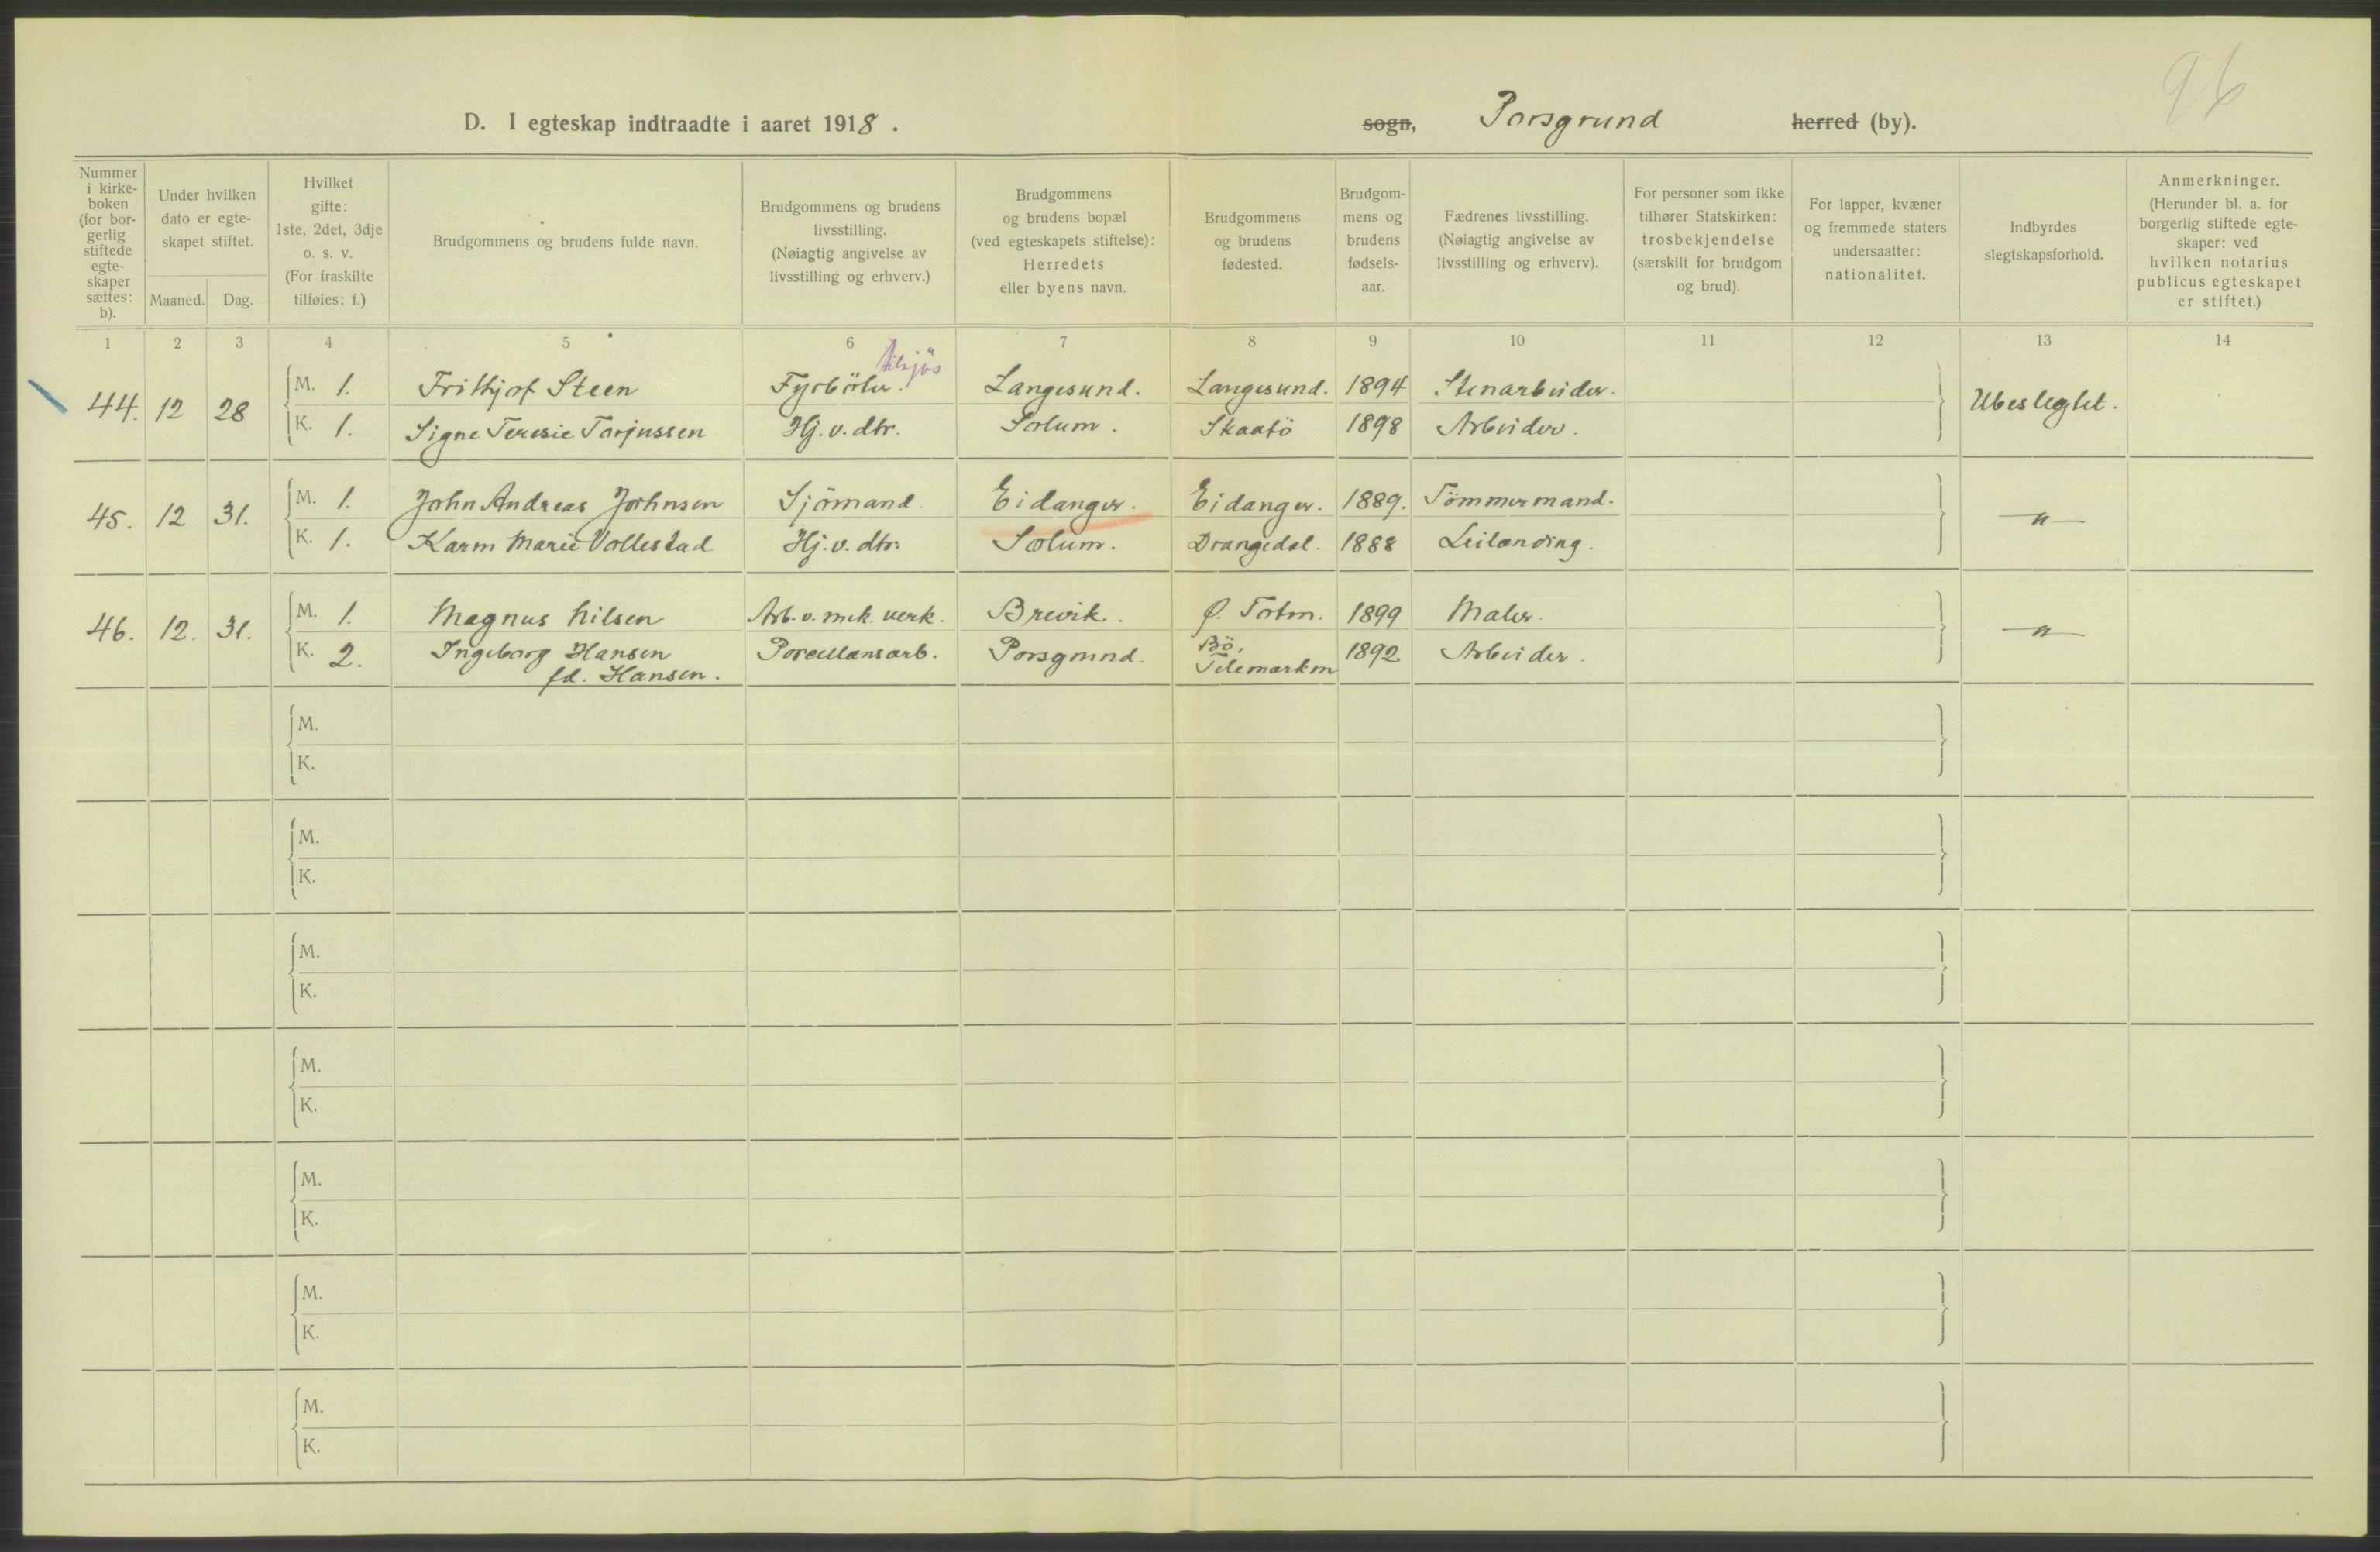 96
D. I egteskap indtraadte i aaret 1918. sogn, Porsgrund herred (by).
Nummer i kirke-boken (for bor-gerlig stiftede egte-skaper sættes: b).
Under hvilken dato er egte-skapet stiftet.
Maaned. Dag.
Hvilket gifte: 1ste, 2det, 3dje o. s. v. (For fraskilte tilføies: f.)
Brudgommens og brudens fulde navn.
Brudgommens og brudens livsstilling. (Nøiagtig angivelse av livsstilling og erhverv.)
Brudgommens og brudens bopæl (ved egteskapets stiftelse): Herredets eller byens navn.
Brudgommens og brudens fødested.
Brudgom-mens og brudens fødsels-aar.
Fædrenes livsstilling. (Nøiagtig angivelse av livsstilling og erhverv).
For personer som ikke tilhører Statskirken: trosbekjendelse (særskilt for brudgom og brud).
For lapper, kvæner og fremmede staters undersaatter: nationalitet.
Indbyrdes slegtskapsforhold.
Anmerkninger. (Herunder bl. a. for borgerlig stiftede egte-skaper: ved hvilken notarius publicus egteskapet er stiftet.)
1 2 3 4 5 6 7 8 9 10 11 12 13 14
tilsjös
44. 12 28 M. 1. Frithjof Steen Fyrböter. Langesund. Langesund. 1894 Stenarbeider. Ubeslegtet.
K. 1. Signe Teresie Torjussen Hj. v. dtr. Solum. Skaatö 1898 Arbeider.
45. 12 31. M. 1. John Andreas Johnsen Sjömand. Eidanger. Eidanger. 1889. Tömmermand. — " —
K. 1. Karen Marie Vollestad Hj. v. dtr. Solum. Drangedal. 1888 Leilænding.
46. 12. 31. M. 1. Magnus Nilsen Arb. v. mek. verk. Brevik. Ø. Toten. 1899 Maler. — " —
K. 2. Ingeborg Hansen Porcellansarb. Porsgrund. Bö, 1892 Arbeider.
fd. Hansen. Telemarken
M.
K.
M.
K.
M.
K.
M.
K.
M.
K.
M.
K.
M.
K.